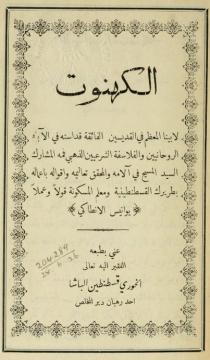 الكهنوت
لابينا المعظم في القديسين الفائقة قداسته في الآباء
الروحانيين والفلاسفة الشرعيين الذهبي فمه المشارك
السيد المسيح في آلامه والمحقق تعاليمه واقواله باعماله
بطريرك القسطنطينية ومعلم المسكونة قولاً وعملاً
يوانيس الانطاكي
عني بطبعه
الفقير اليه تعالى
الخوري قسطنطين الباشا
احد رهبان دير المخلص